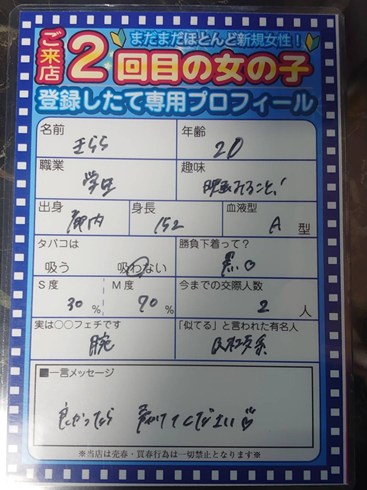 まだまだほとんど新規女性！
ご来店2回目の女の子
登録したて専用プロフィール
名前 きらら
年齢 20
職業 学生
趣味 映画みること！
出身 都内
身長 152
血液型 A 型
タバコは
吸う 吸わない
勝負下着って？
黒
S度 30 %
M度 70 %
今までの交際人数 2 人
実は○○フェチです
腕
「似てる」と言われた有名人
■一言メッセージ
良かったら 声かけてください
※当店は売春・買春行為は一切禁止となります※